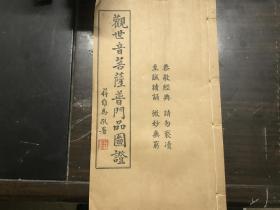 恭敬經典 請勿褻瀆
至誠持誦 微妙無窮
觀世音菩薩普門品圖證
蔣維喬敬署